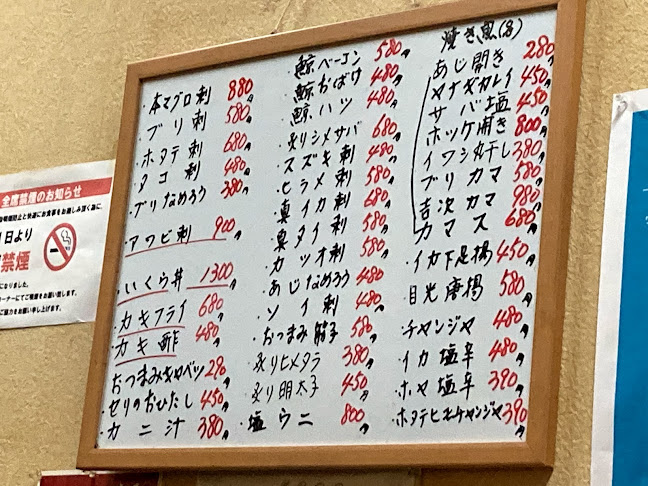 ・本マグロ刺 880円
・ブリ刺 580円
・ホタテ刺 680円
・タコ刺 480円
・ブリなめろう 380円
・アワビ刺 900円
・いくら丼 1300円
・カキフライ 680円
・カキ酢 480円
・おつまみキャベツ 290円
・セリのおひたし 450円
・カニ汁 380円
・鯨ベーコン 580円
・鯨おばけ 480円
・鯨ハツ 480円
・炙りシメサバ 680円
・スズキ刺 480円
・ヒラメ刺 580円
・真イカ刺 580円
・真タイ刺 580円
・カツオ刺 580円
・あじなめろう 480円
・ソイ刺 480円
・おつまみ筋子 580円
・炙りヒメタラ 380円
・炙り明太子 450円
・塩ウニ 800円
焼き魚(各)
あじ開き 280円
ヤナギカレイ 450円
サバ塩 450円
ホッケ開き 800円
イワシ丸干し 380円
ブリカマ 580円
吉次カマ 980円
カマス 680円
・イカ下足揚 450円
・目光唐揚 580円
・チャンジャ 480円
・イカ塩辛 480円
・ホヤ塩辛 390円
・ホタテヒモチャンジャ 390円
全席禁煙のお知らせ
1日より
禁煙
になりました。
コーナーにてご喫煙をお願い致します。
ご協力をお願い申し上げます。